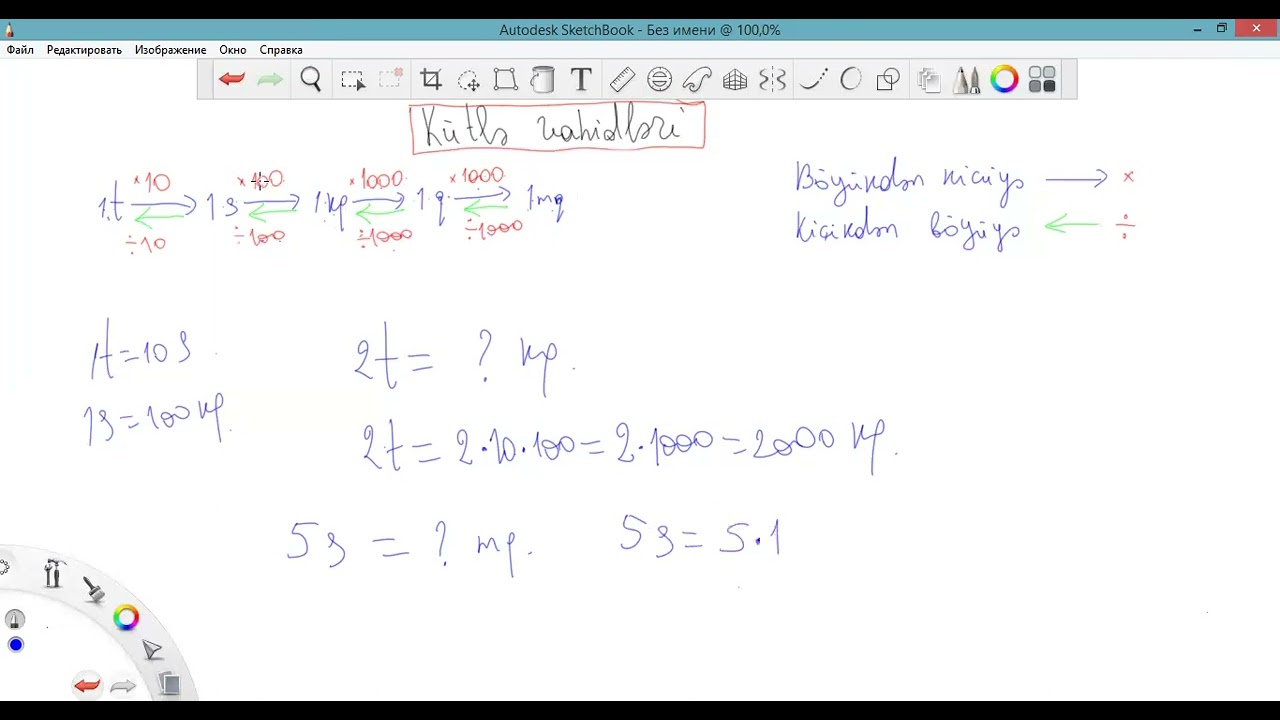 Autodesk SketchBook - Без имени @ 100,0%
Файл Редактировать Изображение Окно Справка
Kütlə vahidləri
×10 ×100 ×1000 ×1000
1t 1s 1kq 1q 1mq
÷10 ÷100 ÷1000 ÷1000
Böyükdən kiçiyə → ×
Kiçikdən böyüyə ← ÷
1t=10s
1s=100kq.
2t= ? kq.
2t=2·10·100=2·1000=2000kq.
5s = ? mq.
5s=5·1